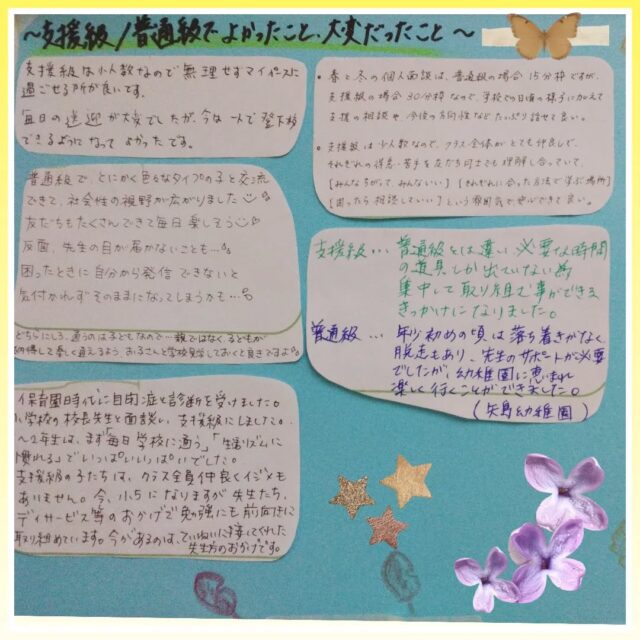 ～支援級/普通級でよかったこと、大変だったこと～
支援級は少人数なので無理せずマイペースに
過ごせる所が良いです。
毎日の送迎が大変でしたが、今は一人で登下校
できるようになってよかったです。
・春と冬の個人面談は、普通級の場合15分枠ですが、
支援級の場合30分枠なので、学校での日頃の様子に加えて
支援の相談や今後の方向性などたっぷり話せて良い。
・支援級は少人数なので、クラス全体がとても仲良しで、
それぞれの得意・苦手を友だち同士でも理解し合っていて、
[みんなちがって、みんないい][それぞれに合った方法で学ぶ場所]
[困ったら相談していい]という雰囲気が安心できて良い。
普通級で、とにかく色々なタイプの子と交流
できて、社会性の視野が広がりました
友だちもたくさんできて毎日楽しそう
反面、先生の目が届かないことも…
困ったときに自分から発信できないと
気付かれずそのままになってしまうかも…
どちらにしろ、通うのは子どもなので…親ではなく、子どもが
納得して楽しく通えるよう、お子さんと学校見学しておくと良きですよ
支援級…普通級とは違い、必要な時間
の道具しか出ていない為
集中して取り組む事ができる
きっかけになりました。
普通級…年少初めの頃は落ち着きがなく
脱走もあり、先生のサポートが必要
でしたが、幼稚園に恵まれ
楽しく行くことができました。
(矢島幼稚園)
保育園時代に自閉症と診断を受けました。
小学校の校長先生と面談し、支援級にしました。
～2年生は、まず「毎日学校に通う」「生活リズムに
慣れる」でいっぱいいっぱいでした。
支援級の子たちは、クラス全員仲良くイジメも
ありません。今、小5になりますが先生たち、
デイサービス等のおかげで勉強にも前向きに
取り組めています。今があるのは、ていねいに接してくれた
先生方のおかげです。